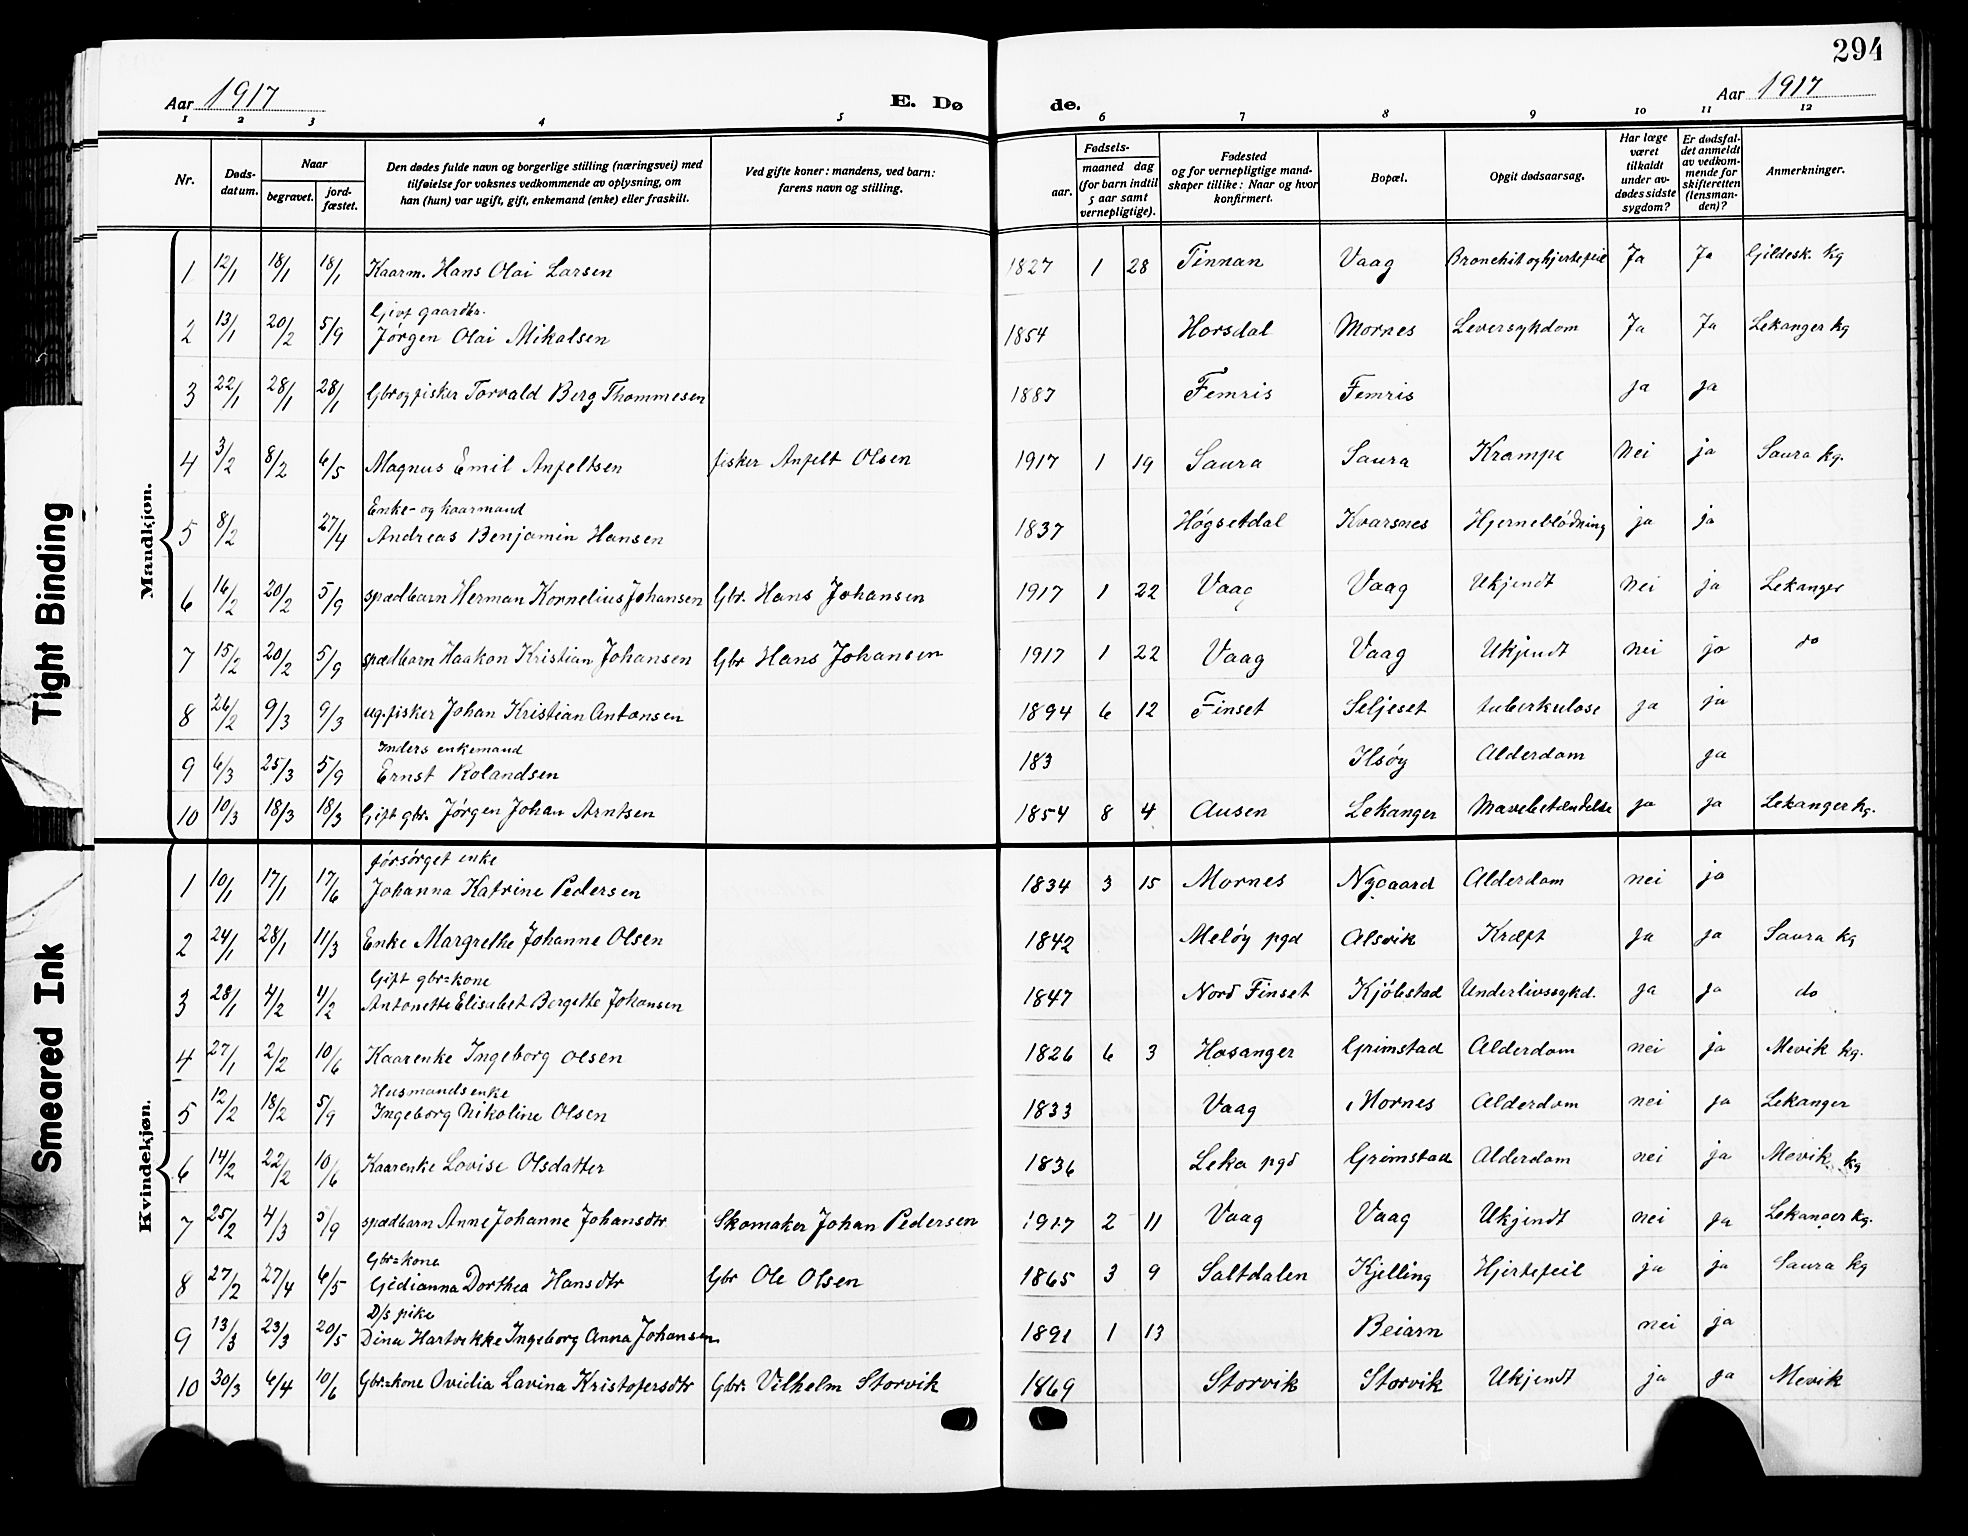 294
Aar 1917 E. Dø de. Aar 1917
1 2 3 4 5 6 7 8 9 10 11 12
Nr. | Døds-datum. | Naar begravet. | jord-fæstet. | Den dødes fulde navn og borgerlige stilling (næringsvei) med tilføielse for voksnes vedkommende av oplysning, om han (hun) var ugift, gift, enkemand (enke) eller fraskilt. | Ved gifte koner: mandens, ved barn: farens navn og stilling. | Fødsels- aar. | maaned dag (for barn indtil 5 aar samt vernepligtige). | Fødested og for vernepligtige mand-skaper tillike: Naar og hvor konfirmert. | Bopæl. | Opgit dødsaarsag. | Har læge været tilkaldt under av-dødes sidste sygdom? | Er dødsfal-det anmeldt av vedkom-mende for skifteretten (lensman-den)? | Anmerkninger.
Mandkjøn.
1 12/1 18/1 18/1 Kaarm. Hans Olai Larsen 1827 1 28 Finnan Vaag Bronchit og hjertefeil Ja Ja Gildesk. kg
2 13/1 20/2 5/9 Givt gaardbr. Jørgen Olai Mikalsen 1854 Horsdal Mornes Leversykdom Ja Ja Lekanger kg
3 22/1 28/1 28/1 Gbr og fisker Torvald Berg Thommesen 1887 Femris Femris ja ja
4 3/2 8/2 6/5 Magnus Emil Anfeltsen fisker Anfelt Olsen 1917 1 19 Saura Saura Krampe Nei ja Saura kg.
5 8/2 27/4 Enke- og kaarmand Andreas Benjamin Hansen 1837 Høgsetdal Kvarsnes Hjerneblødning ja ja
6 16/2 20/2 5/9 spædbarn Herman Kornelius Johansen Gbr. Hans Johansen 1917 1 22 Vaag Vaag Ukjendt Nei ja Lekanger
7 15/2 20/2 5/9 spædbarn Haakon Kristian Johansen Gbr Hans Johansen 1917 1 22 Vaag Vaag Ukjendt nei ja do
8 26/2 9/3 9/3 ug. fisker Johan Kristian Antonsen 1894 6 12 Finset Seljeset tuberkulose ja ja
9 6/3 25/3 5/9 Inders enkemand Ernst Rolandsen 183 Ilsøy Alderdom ja
10 10/3 18/3 18/3 Gift gbr. Jørgen Johan Arntsen 1854 8 4 Ausen Lekanger Mavebetændelse ja ja Lekanger kg.
Kvindekjøn.
1 10/1 17/1 17/6 forsørget enke Johanna Katrine Pedersen 1834 3 15 Mornes Nygaard Alderdom nei ja
2 24/1 28/1 11/3 Enke Margrethe Johanne Olsen 1842 Meløy pgd Alsvik Kræft ja ja Saura kg
3 28/1 4/2 4/2 Gift gbr=kone Antonette Elisabet Bergette Johansen 1847 Nord Finset Kjøbstad Underlivssykd. ja ja do
4 27/1 2/2 10/6 Kaarenke Ingeborg Olsen 1826 6 3 Hosanger Grimstad Alderdom nei ja Mevik kg.
5 12/2 18/2 5/9 Husmandsenke Ingeborg Nikoline Olsen 1833 Vaag Mornes Alderdom nei ja Lekanger
6 14/2 22/2 10/6 Kaarenke Lovise Olsdatter 1836 Leka pgd Grimstad Alderdom nei ja Mevik kg
7 25/2 4/3 5/9 spædbarn Anne Johanne Johansdtr Skomaker Johan Pedersen 1917 2 11 Vaag Vaag Ukjendt nei ja Lekanger kg.
8 27/2 27/4 6/5 Gbr=kone Gidianna Dorthea Hansdtr Gbr Ole Olsen 1865 3 9 Saltdalen Kjelling Hjertefeil ja ja Saura kg
9 13/3 23/3 20/5 D/s pike Dina Hartvikke Ingeborg Anna Johansen 1891 1 13 Beiarn nei ja
10 30/3 6/4 10/6 Gbr=kone Ovidia Lavina Kristofersdtr Gbr. Vilhelm Storvik 1869 Storvik Storvik Ukjendt ja ja Mevik
Tight Binding
Smeared Ink